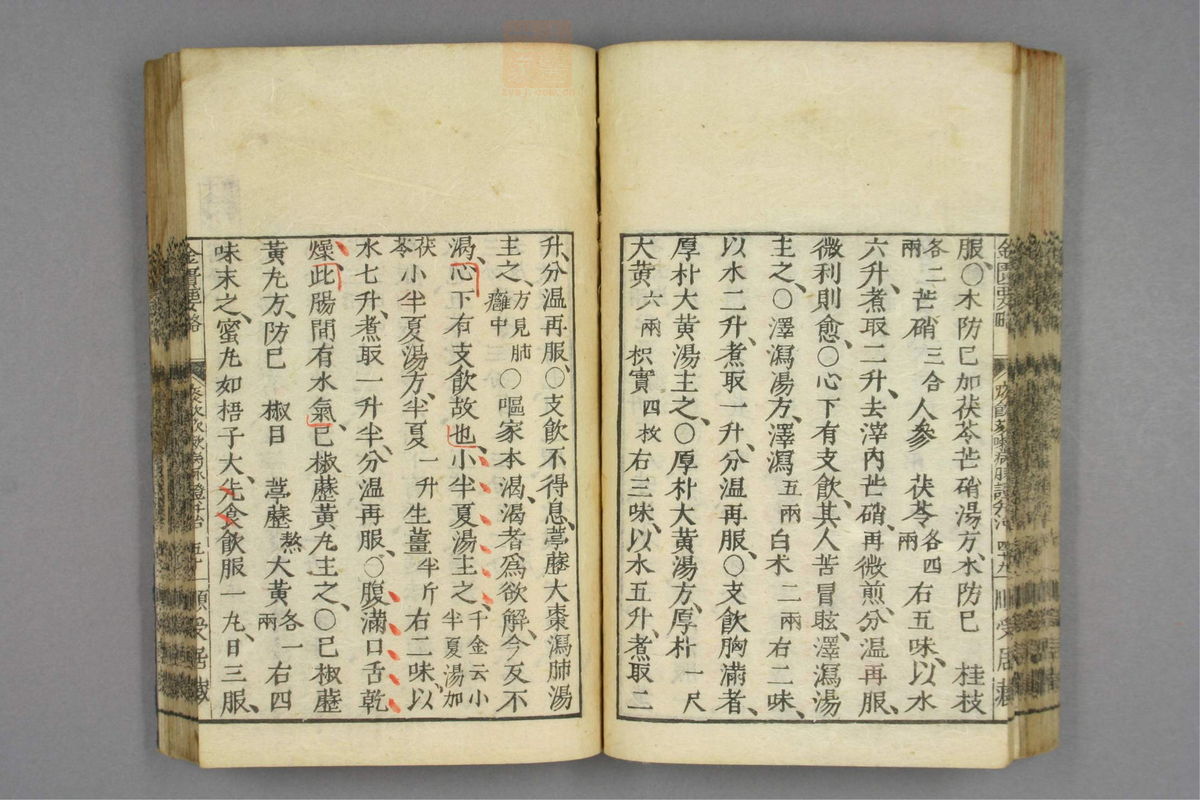 服、○木防已加茯苓芒硝湯方、木防已　桂枝
各二兩芒硝三合人參　茯苓各四兩右五味、以水
六升、煮取二升、去滓內芒硝、再微煎、分温再服、
微利則愈、○心下有支飲、其人苦冒眩、澤瀉湯
主之、○澤瀉湯方、澤瀉五兩白朮二兩右二味、
以水二升、煮取一升、分温再服、○支飲胸滿者、
厚朴大黄湯主之、○厚朴大黄湯方、厚朴一尺
大黄六兩枳實四枚右三味、以水五升、煮取二
升、分温再服、○支飲不得息、葶藶大棗瀉肺湯
主之、方見肺癰中○嘔家本渴、渴者爲欲解、今反不
渴、心下有支飲故也、小半夏湯主之、千金云小半夏湯加茯苓
小半夏湯方、半夏一升生薑半斤右二味、以
水七升、煮取一升半、分温再服、○腹滿口舌乾
燥、此腸間有水氣、已椒藶黃丸主之、○已椒藶
黃丸方、防已　椒目　葶藶熬大黄各一兩右四
味末之、蜜丸如梧子大、先食飲服一丸、日三服、
順受居藏